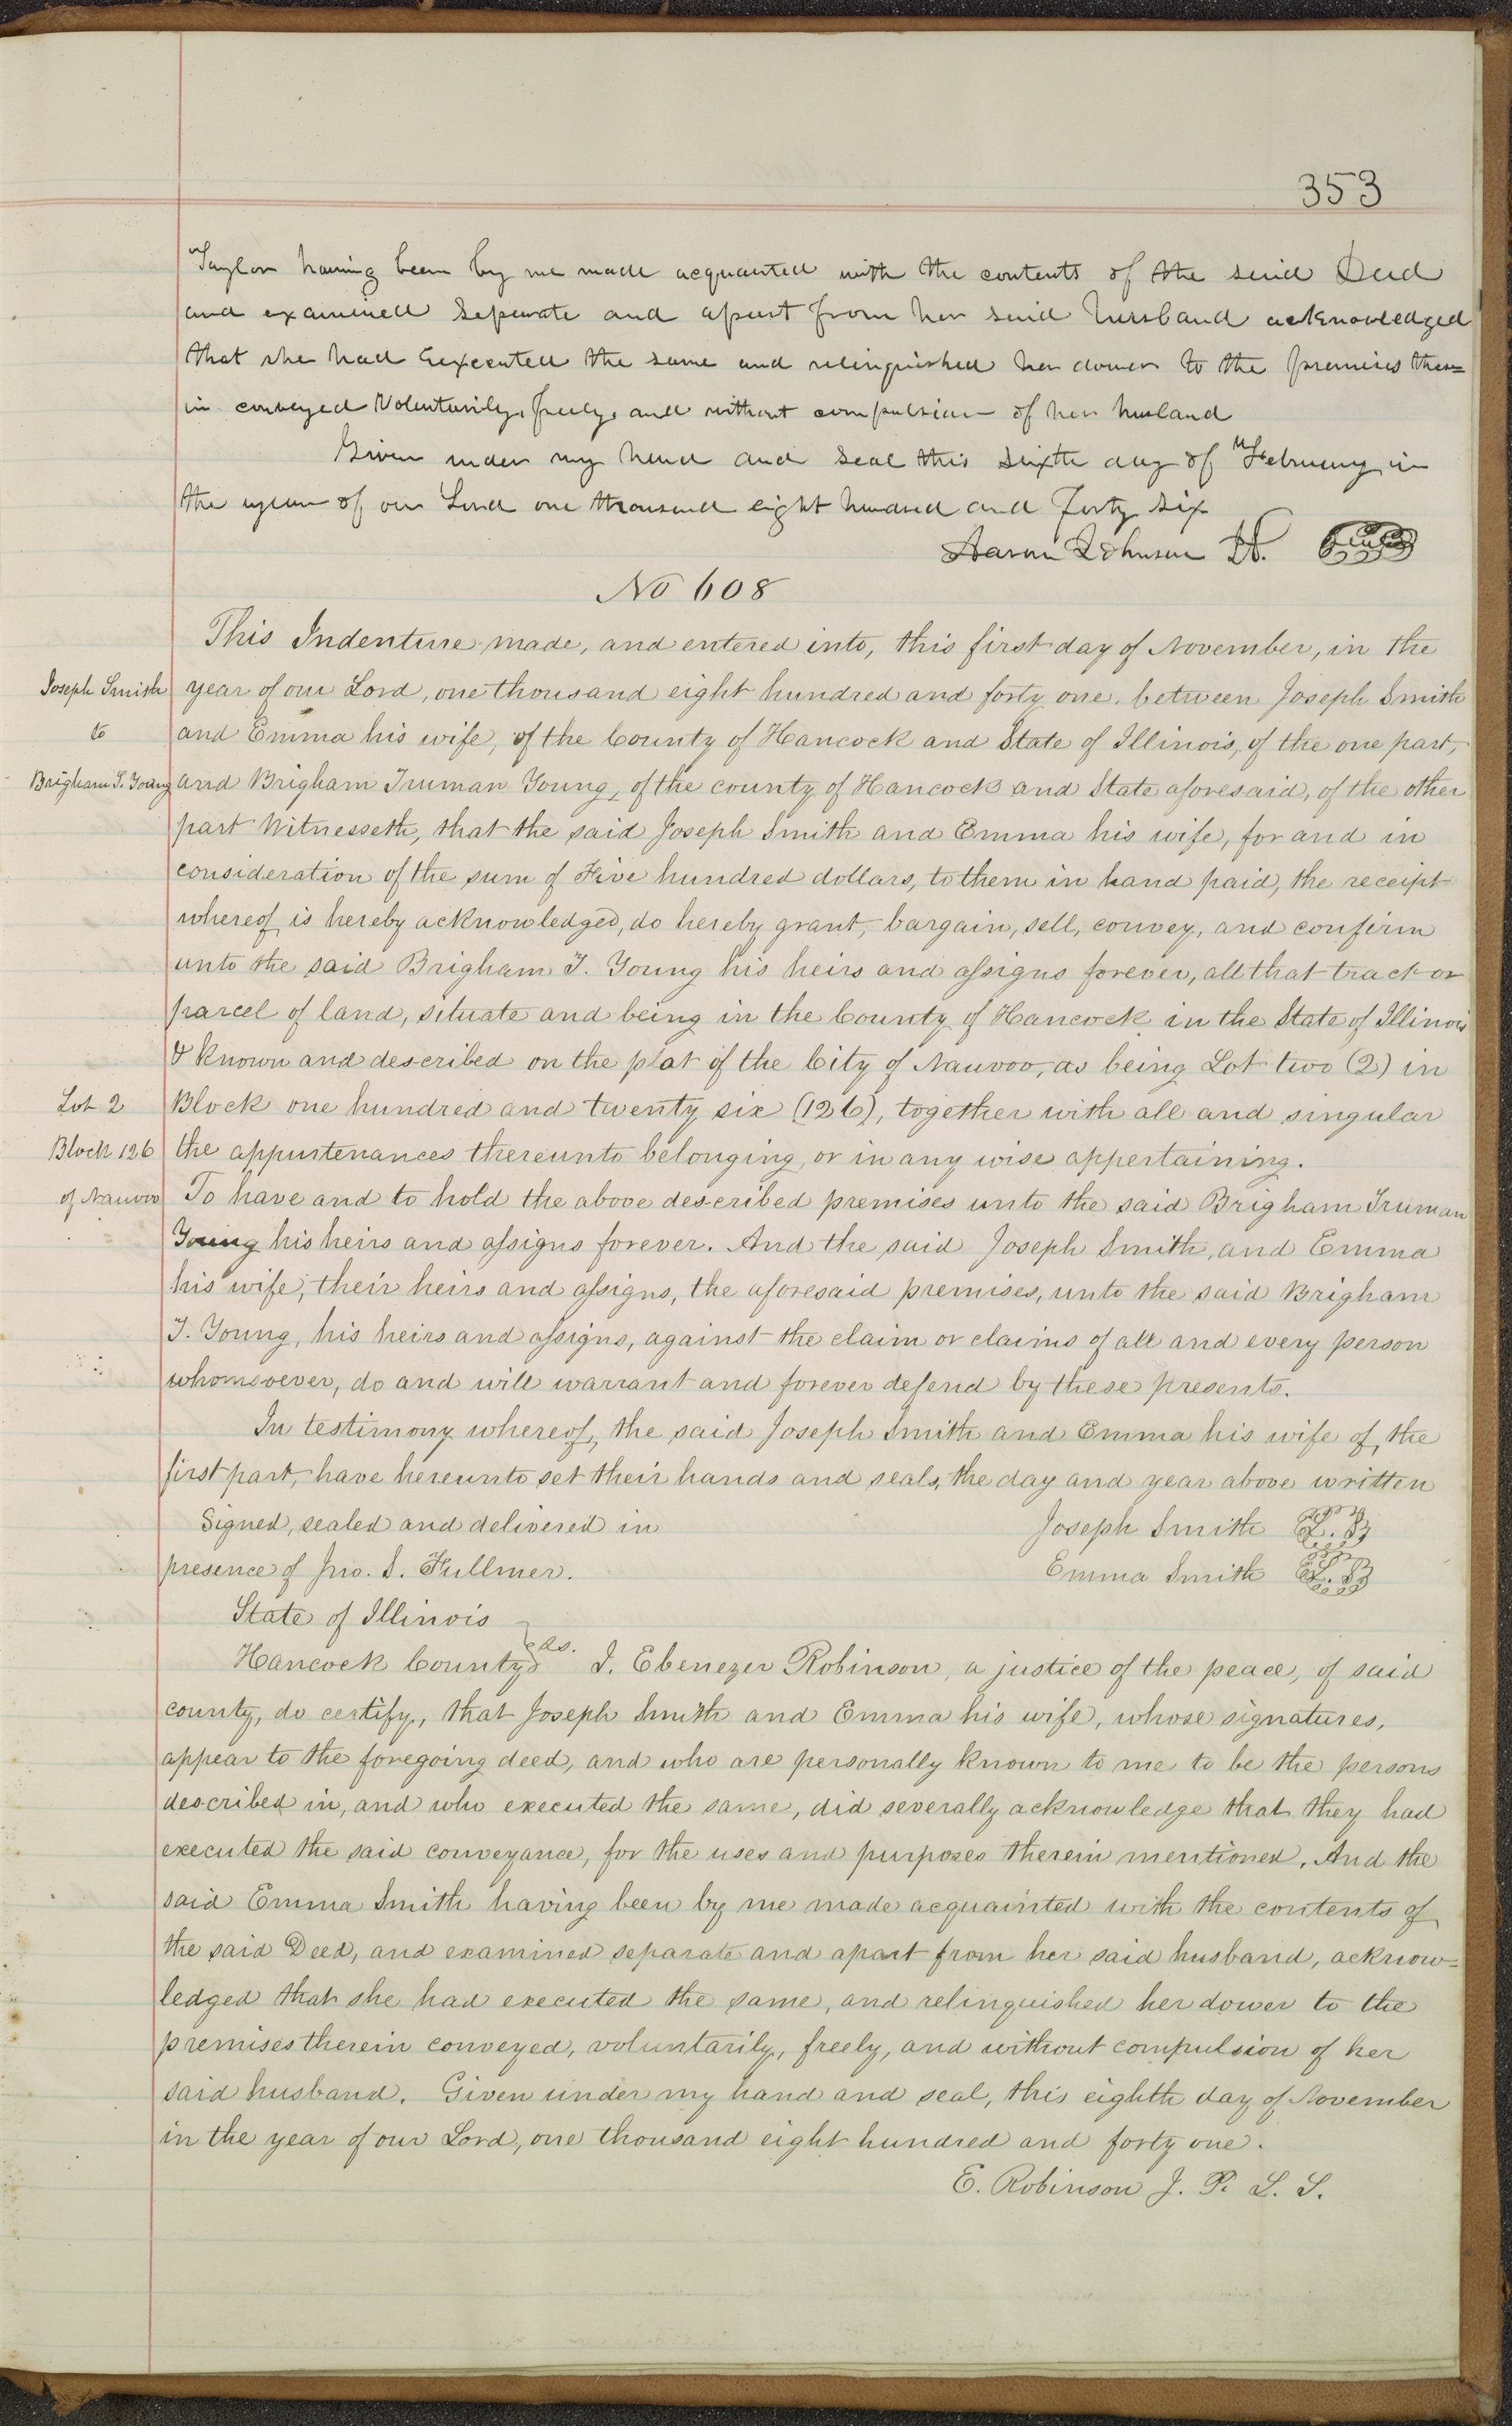 353
Taylor having been by me made acquanted with the contents of the said Deed
and examined Separate and apart from her said husband acknowledged
that she had Eexecuted the same and relinquished her dower to the premises there=
in conveyed Voluntarily, freely, and without compulsion of her husband
Given under my hand and Seal this Sixth day of February in
the year of our Lord one thousand eight hundred and Forty Six
Aaron Johnson
No 608
This Indenture made, and entered into, this first day of November, in the
Joseph Smith year of our Lord, one thousand eight hundred and forty one, between Joseph Smith
to and Emma his wife, of the County of Hancock and State of Illinois, of the one part,
Brigham T. Young and Brigham Truman Young, of the county of Hancock and State aforesaid, of the other
part Witnesseth, that the said Joseph Smith and Emma his wife, for and in
consideration of the sum of Five hundred dollars, to them in hand paid, the receipt
whereof is hereby acknowledged, do hereby grant, bargain, sell, convey, and confirm
unto the said Brigham T. Young his heirs and assigns forever, all that tract or
parcel of land, situate and being in the County of Hancock in the State of Illinois
& known and described on the plat of the City of Nauvoo, as being Lot two (2) in
Lot 2 Block one hundred and twenty six (126), together with all and singular
Block 126 the appurtenances thereunto belonging, or in any wise appertaining.
of Nauvoo To have and to hold the above described premises unto the said Brigham Truman
Young his heirs and assigns forever. And the said Joseph Smith, and Emma
his wife, their heirs and assigns, the aforesaid premises, unto the said Brigham
T. Young, his heirs and assigns, against the claim or claims of all and every person
whomsoever, do and will warrant and forever defend by these presents.
In testimony whereof, the said Joseph Smith and Emma his wife of the
first part, have hereunto set their hands and seals, the day and year above written
Signed, sealed and delivered in Joseph Smith L. S
presence of Jno. S. Fullmer. Emma Smith L. S
State of Illinois
Hancock County } ss. I. Ebenezer Robinson, a justice of the peace, of said
county, do certify, that Joseph Smith and Emma his wife, whose signatures,
appear to the foregoing deed, and who are personally known to me to be the persons
described in, and who executed the same, did severally acknowledge that they had
executed the said conveyance, for the uses and purposes therein mentioned. And the
said Emma Smith having been by me made acquainted with the contents of
the said Deed, and examined separate and apart from her said husband, acknow=
ledged that she had executed the same, and relinquished her dower to the
premises therein conveyed, voluntarily, freely, and without compulsion of her
said husband. Given under my hand and seal, this eighth day of November
in the year of our Lord, one thousand eight hundred and forty one.
E. Robinson J. P. L. S.